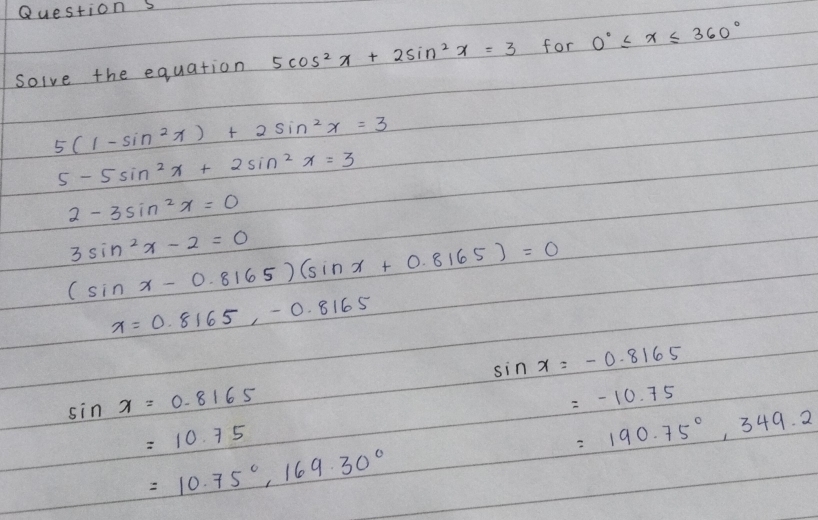 Question 5
Solve the equation 5cos² x + 2sin² x = 3 for 0° ≤ x ≤ 360°
5(1-sin²x) + 2sin²x = 3
5 - 5sin²x + 2sin²x = 3
2 - 3sin²x = 0
3sin²x - 2 = 0
(sin x - 0.8165)(sin x + 0.8165) = 0
x = 0.8165, -0.8165
sin x = 0.8165
= 10.75
= 10.75°, 169.30°
sin x = -0.8165
= -10.75
= 190.75°, 349.2